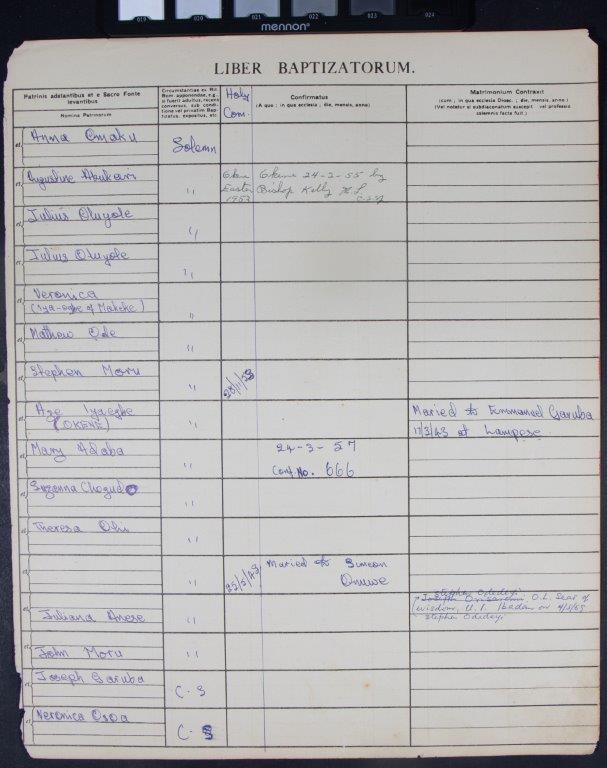 019 020 021 022 023 024
mennon
LIBER BAPTIZATORUM.
Patrinis adstantibus et e Sacro Fonte
levantibus
Nomina Patrinorum
Circumstantiae ex Rit.
Rom. apponendae, e.g.,
si fuerit adultus, recens
conversus, sub condi-
tione vel privatim Bap-
tizatus, expositus, etc.
Holy
Com.
Confirmatus
(A quo ; in qua ecclesia ; die, mensis, anno)
Matrimonium Contraxit
(cum ; in qua ecclesia Dioec. ; die, mensis, anno.)
(Vel notatur si subdiaconatum suscepit vel professio
solemnis facta fuit.)
et Anna Omaku Solemn
et Augustine Abukari ,, Okene Okene 24-2-55 by
Easter Bishop Kelly
1953
et Julius Oluyole ,,
et Julius Oluyole ,,
et Veronica
(Iya-egbe of Makeke) ,,
et Mathew Ode ,,
et Stephen Moru ,,
et Aze Iyaegbe ,, Maried to Emmanuel Garuba
(OKENE) 17/3/43 at Lampese
et Mary Adaba 24-3-57
,, Conf No. 666
et Suzanna ,,
et Theresa Obi ,,
et ,, Maried to Simeon
Onuwe
Stephen Odedeyi
Joseph O.L. Seat of
et Juliana Anese ,, Wisdom, U.I. Ibadan on 4/5/69
Stephen Odedeyi
et John Moru ,,
et Joseph Garuba C.S
et Veronica Osoa C. S